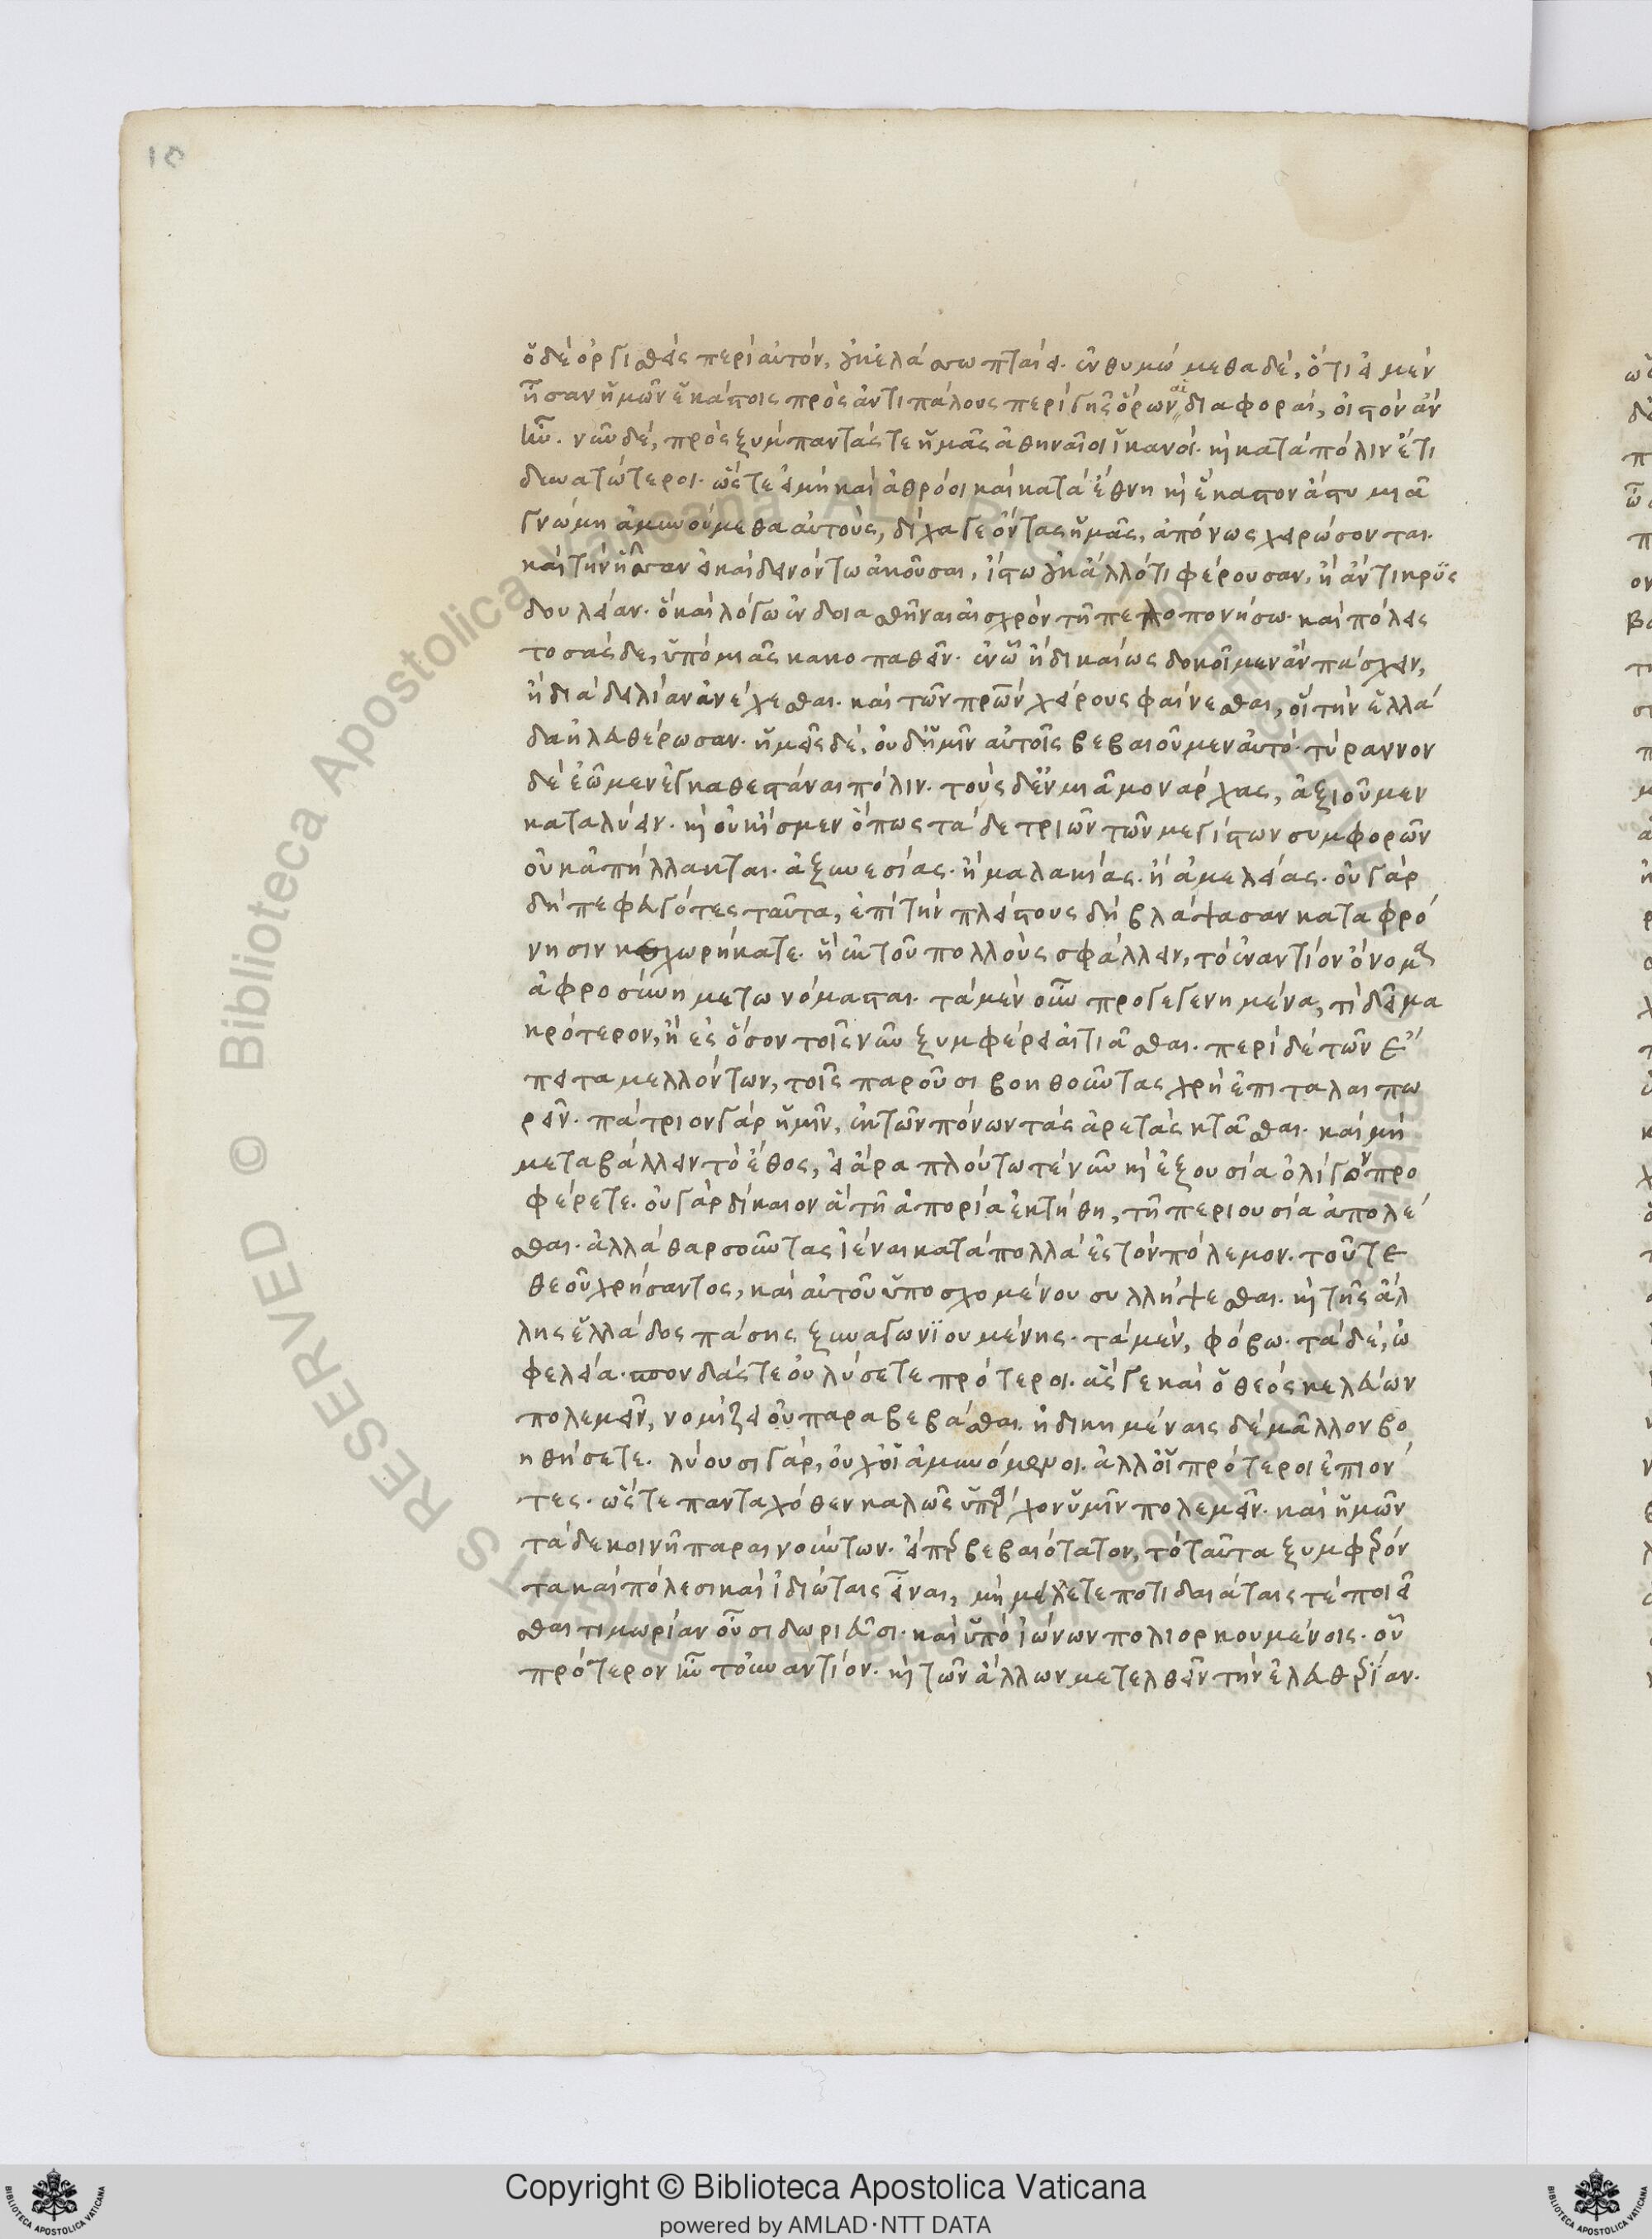 10
ὁ δὲ ὀργισθεὶς περὶ αὐτὸν, οὐκ ἐλάσσω πταίει. ἐνθυμώμεθα δὲ, ὅτι εἰ μὲν
ἦσαν ἡμῶν ἑκάστοις πρὸς ἀντιπάλους περὶ γῆς ὅρων αἱ διαφοραὶ, οἰστὸν ἂν
ἦν. νῦν δὲ, πρὸς ξύμπαντάς τε ἡμᾶς ἀθηναῖοι ἱκανοὶ. καὶ κατὰ πόλιν ἔτι
δυνατώτεροι. ὥστε εἰ μὴ καὶ ἀθρόοι καὶ κατὰ ἔθνη καὶ ἕκαστον ἄστυ μιᾶ
γνώμη ἀμυνούμεθα αὐτοὺς, δίχα γε ὄντας ἡμᾶς, ἀπόνως χειρώσονται.
καὶ τὴν ἧσσαν εἰ καὶ δεινόν τω ἀκοῦσαι, ἴστω οὐκ ἄλλό τι φέρουσαν, ἢ ἀντικρὺς
δουλείαν. ὃ καὶ λόγω ἐνδοιασθῆναι αἰσχρὸν τῆ πελοπονήσω. καὶ πόλεις
τοσάσδε, ὑπὸ μιᾶς κακοπαθεῖν. ἐν ᾧ ἢ δικαίως δοκοῖμεν ἂν πάσχειν,
ἢ διὰ δειλίαν ἀνέχεσθαι. καὶ τῶν πρῶν χείρους φαίνεσθαι, οἳ τὴν ἑλλά
δα ἠλευθέρωσαν. ἡμεῖς δὲ, οὐδ᾽ ἡμῖν αὐτοῖς βεβαιοῦμεν αὐτὸ. τύραννον
δὲ ἐῶμεν ἐγκαθεστάναι πόλιν. τοὺς δ᾽ ἐν μιᾶ μονάρχας, ἀξιοῦμεν
καταλύειν. καὶ οὐκ ἴσμεν ὅπως τάδε τριῶν τῶν μεγίστων συμφορῶν
οὐκ ἀπήλλακται. ἀξυνεσίας. ἢ μαλακίας. ἢ ἀμελείας. οὐ γὰρ
δὴ πεφευγότες ταῦτα, ἐπὶ τὴν πλείστους δὴ βλάψασαν καταφρό
νησιν κεχωρήκατε. ἣ ἐκ τοῦ πολλοὺς σφάλλειν, τὸ ἐναντίον ὄνομα
ἀφροσύνη μετωνόμασται. τὰ μὲν οὖν προγεγενημένα, τί δεῖ μα
κρότερον, ἢ ἐς ὅσον τοῖς νῦν ξυμφέρει αἰτιᾶσθαι. περὶ δὲ τῶν ἔ
πειτα μελλόντων, τοῖς παροῦσι βοηθοῦντας χρὴ ἐπιταλαιπω
ρεῖν. πάτριον γὰρ ἡμῖν, ἐκ τῶν πόνων τὰς ἀρετὰς κτᾶσθαι. καὶ μὴ
μεταβάλλειν τὸ ἔθος, εἰ ἄρα πλούτω τε νῦν καὶ ἐξουσία ὀλίγον προ
φέρετε. οὐ γὰρ δίκαιον ἃ τῆ ἀπορία ἐκτήθη, τῆ περιουσία ἀπολέ
σθαι. ἀλλὰ θαρσοῦντας ἰέναι κατὰ πολλὰ ἐς τὸν πόλεμον. τοῦ τε
θεοῦ χρήσαντος, καὶ αὐτοῦ ὑποσχομένου συλλήψεσθαι. καὶ τῆς ἄλ
λης ἑλλάδος πάσης ξυναγωνϊουμένης. τὰ μὲν, φόβω. τὰ δὲ, ὠ
φελεία. σπονδάς τε οὐ λύσετε πρότεροι. ἅς γε καὶ ὁ θεὸς κελεύων
πολεμεῖν, νομίζει οὐ παραβεβάσθαι. ἠδικημέναις δὲ μᾶλλον βο
ηθήσετε. λύουσι γὰρ, οὐχ οἱ ἀμυνόμενοι. ἀλλ᾽ οἱ πρότεροι ἐπιόν
τες. ὥστε πανταχόθεν καλῶς ὑπάρχον ὑμῖν πολεμεῖν. καὶ ἡμῶν
τάδε κοινῆ παραινούντων. εἴπερ βεβαιότατον, τὸ ταῦτα ξυμφέρον
τα καὶ πόλεσι καὶ ἰδιώταις εἶναι, μὴ μέλλετε ποτιδαιάταις τε ποιεῖ
σθαι τιμωρίαν οὖσι δωριεῦσι. καὶ ὑπὸ ἰώνων πολιορκουμένοις. οὗ
πρότερον ἦν τοὐναντίον. καὶ τῶν ἄλλων μετελθεῖν τὴν ἐλευθερίαν.
Copyright © Biblioteca Apostolica Vaticana
powered by AMLAD·NTT DATA